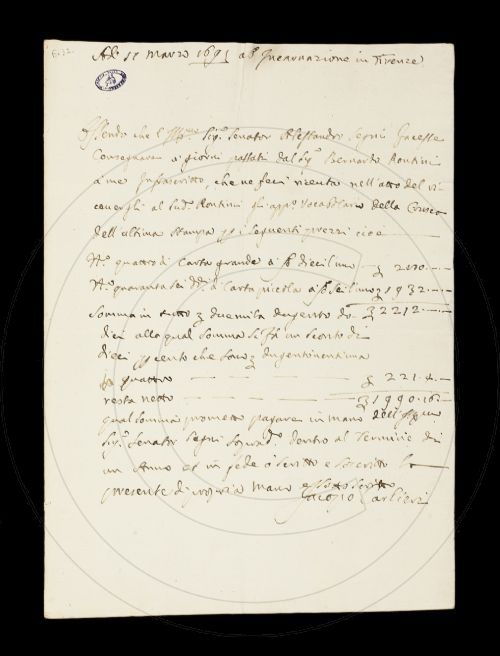 Al: 11 Marzo 1691 ab Incarnazione in Firenze
Essendo che l' Ill.mo Sig.r Senator Alessandro Segni facesse
Consegnare a giorni passati dal Sig.r Bernardo Rontini
a me Infrascritto, che ne feci ricevuta nell'atto del ri-
ceverli al Sud.o Rontini gli app.o Vocabolario della Crusca
dell'ultima Stampa p i seguenti prezzi cioè
N.o quattro di Carta grande a
N.o quaranta sei D.i di Carta piccola a 1932
Somma in tutto duemila dugento do-
dici alla qual Somma si fà un sconto di
dieci p cento che sono dugentoventuna
quattro 221.4.
resta netto 1990.16
qual somma prometto pagare in mano
Sig.r Senator Segni Sopra d.o dentro al Termine di
un Anno et in fede ò Scritto e Soscritto la
presente di propria mano
Jacopo Carlieri